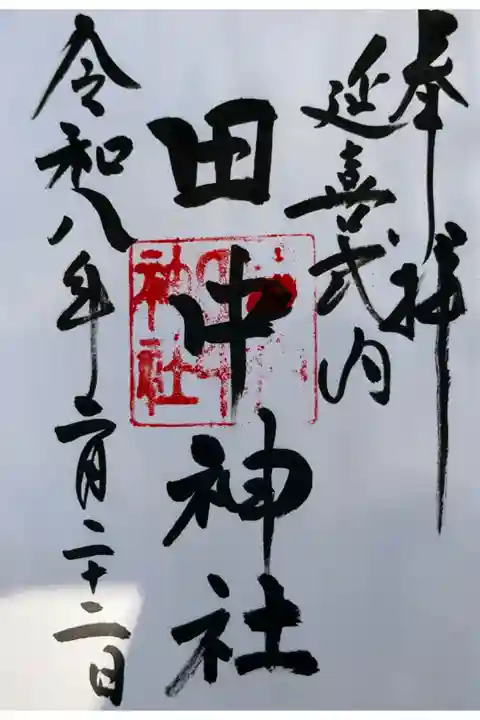 奉拝
延喜式内
田中神社
田中神社
令和八年二月二十二日